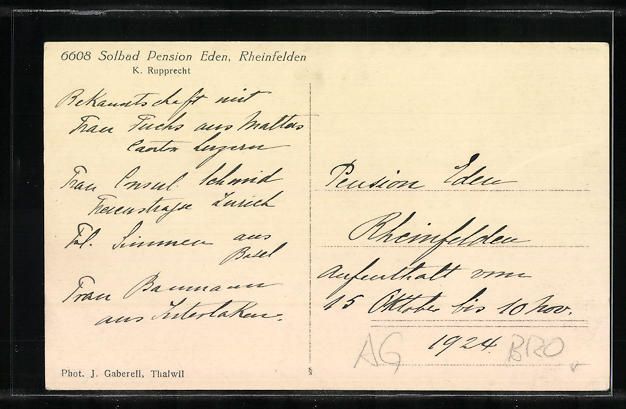 6608 Solbad Pension Eden, Rheinfelden
K. Rupprecht
Bekanntschaft mit
Frau Fuchs aus Malters
Canton Luzern
Frau Consul Schmid
Zürich
Frl. Simmen aus
Basel
Frau Baumann
aus Interlaken.
Phot. J. Gaberell, Thalwil
Pension Eden
Rheinfelden
Aufenthalt vom
15 Oktober bis 10 Nov.
1924.
AG BRO